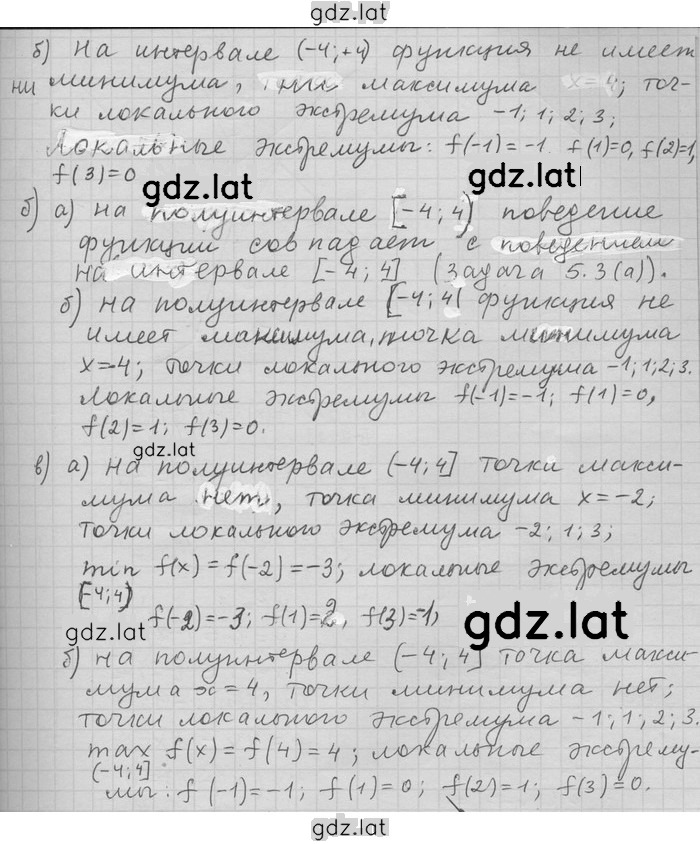 gdz.lat
б) На интервале (-4;+4) функция не имеет
ни минимума, ни максимума x=4; точ-
ки локального экстремума -1; 1; 2; 3;
Локальные экстремумы: f(-1)=-1. f(1)=0, f(2)=1,
f(3)=0
gdz.lat gdz.lat
б) а) на полуинтервале [-4; 4) поведение
функции совпадает с поведением
на интервале [-4; 4] (Задача 5.3(а)).
б) на полуинтервале [-4; 4( функция не
имеет максимума, точка минимума
x=-4; точки локального экстремума -1; 1; 2; 3.
Локальные экстремумы f(-1)=-1; f(1)=0,
f(2)=1; f(3)=0.
gdz.lat
в) а) на полуинтервале (-4; 4] точки макси-
мума нет, точка минимума x=-2;
точки локального экстремума -2; 1; 3;
min f(x)=f(-2)=-3; локальные экстремумы
[-4; 4)
f(-2)=-3; f(1)=2, f(3)=-1,
gdz.lat gdz.lat
б) на полуинтервале (-4; 4] точка макси-
мума x=4, точки минимума нет;
точки локального экстремума -1; 1; 2; 3.
max f(x)=f(4)=4; локальные экстрему-
(-4; 4]
мы: f(-1)=-1; f(1)=0; f(2)=1; f(3)=0.
gdz.lat